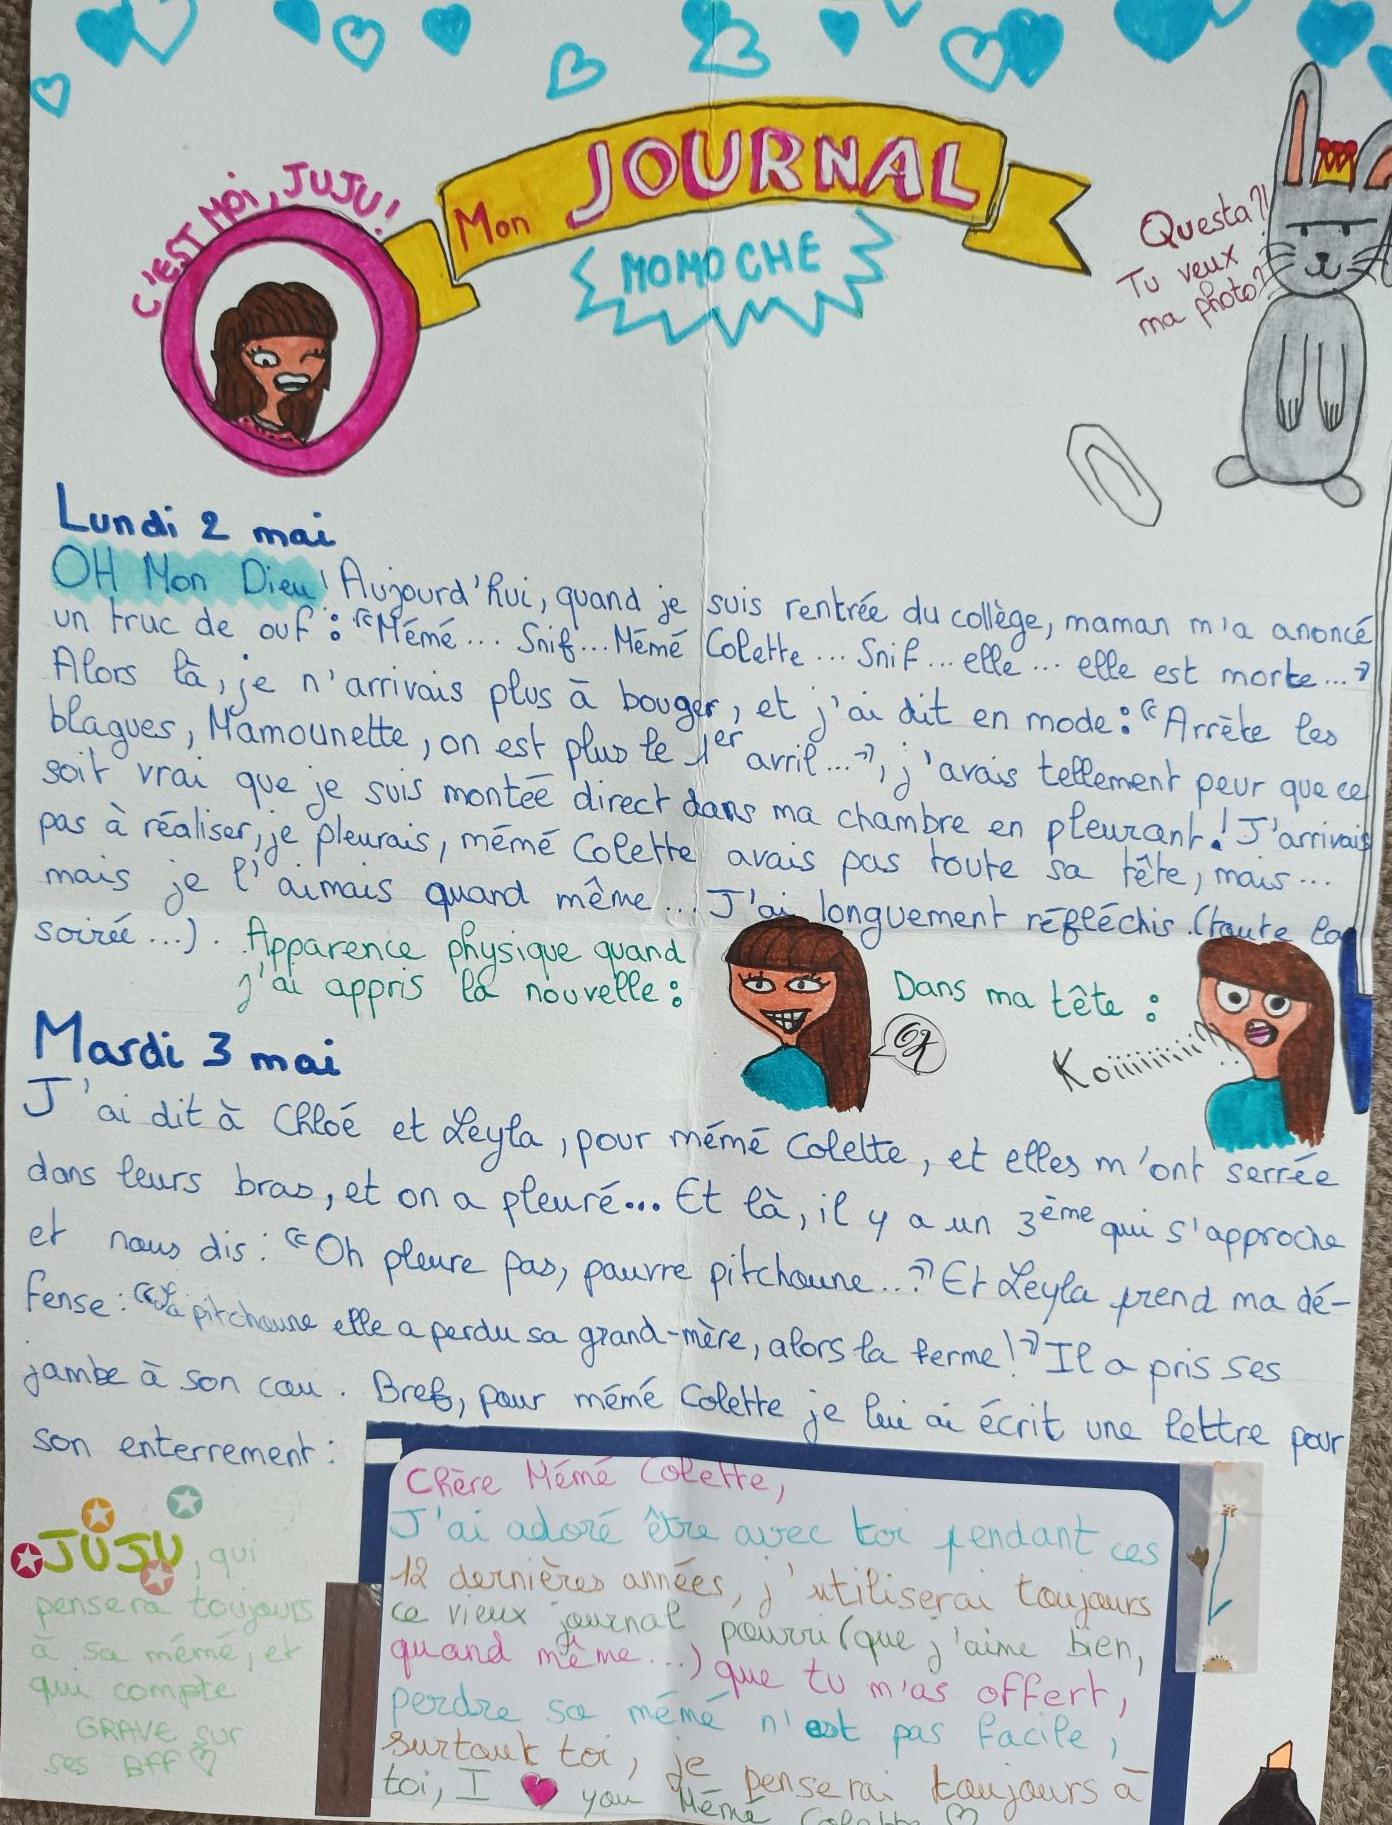 C'EST MOI, JUJU!
Mon JOURNAL
MOMOCHE
Questa?!
Tu veux
ma photo?
Lundi 2 mai
OH Mon Dieu! Aujourd'hui, quand je suis rentrée du collège, maman m'a anoncé
un truc de ouf : "Mémé... Snif... Mémé Colette... Snif... elle... elle est morte..."
Alors là, je n'arrivais plus à bouger, et j'ai dit en mode : "Arrête les
blagues, Mamounette, on est plus le 1er avril...", j'avais tellement peur que ce
soit vrai que je suis montée direct dans ma chambre en pleurant! J'arrivais
pas à réaliser, je pleurais, mémé Colette avais pas toute sa tête, mais...
mais je l'aimais quand même... J'ai longuement réfléchis (toute la
soirée...).
Apparence physique quand
j'ai appris la nouvelle :
OK
Dans ma tête :
Koiiiiiiiii?!
Mardi 3 mai
J'ai dit à Chloé et Leyla, pour mémé Colette, et elles m'ont serrée
dans leurs bras, et on a pleuré... Et là, il y a un 3ème qui s'approche
et nous dis : "Oh pleure pas, pauvre pitchoune..." Et Leyla prend ma dé-
fense : "La pitchoune elle a perdu sa grand-mère, alors ta ferme!" Il a pris ses
jambe à son cou. Bref, pour mémé Colette je lui ai écrit une lettre pour
son enterrement :
Chère Mémé Colette,
J'ai adoré être avec toi pendant ces
12 dernières années, j'utiliserai toujours
ce vieux journal pourri (que j'aime bien,
quand même...) que tu m'as offert,
perdre sa mémé n'est pas facile,
surtout toi, je penserai toujours à
toi, I ♥ you Mémé Colette ♡
JUJU, qui
pensera toujours
à sa mémé, et
qui compte
GRAVE sur
ses BFF ♡